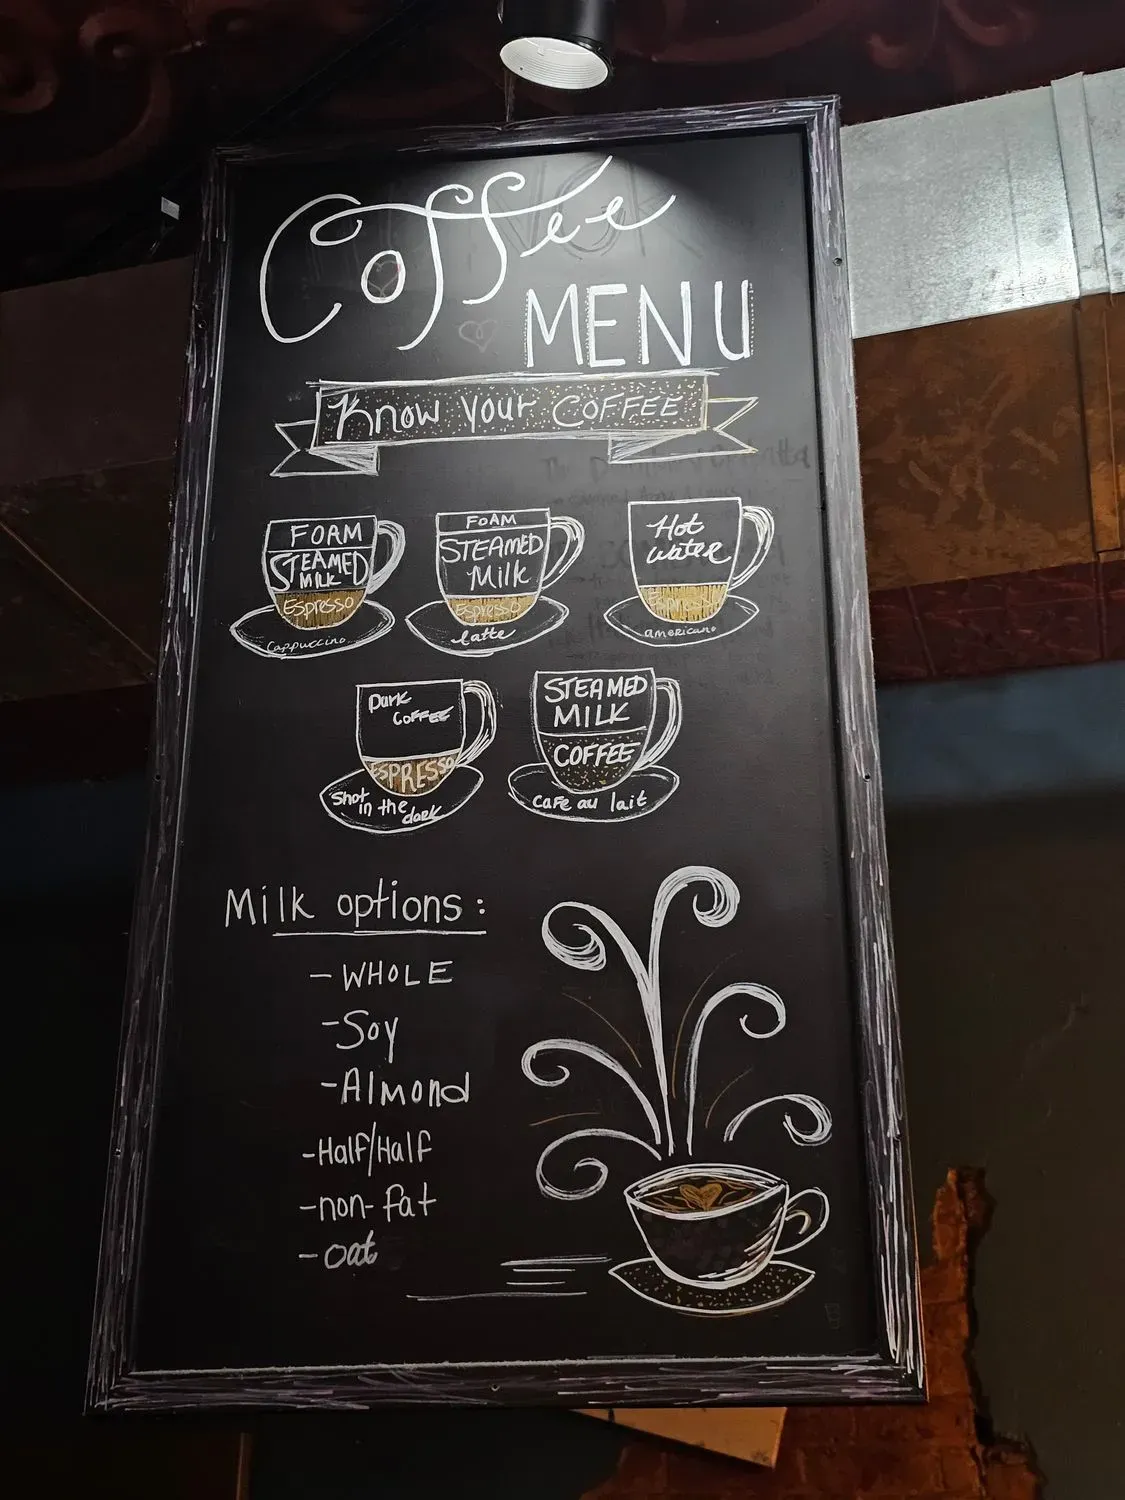 Coffee
MENU
Know your COFFEE
FOAM
STEAMED
MILK
Espresso
Cappuccino
FOAM
STEAMED
Milk
Espresso
latte
Hot
water
Espresso
americano
Dark
COFFEE
ESPRESSO
Shot
in the
dark
STEAMED
MILK
COFFEE
cafe au lait
Milk options:
- WHOLE
- Soy
- Almond
- Half/Half
- non-fat
- oat